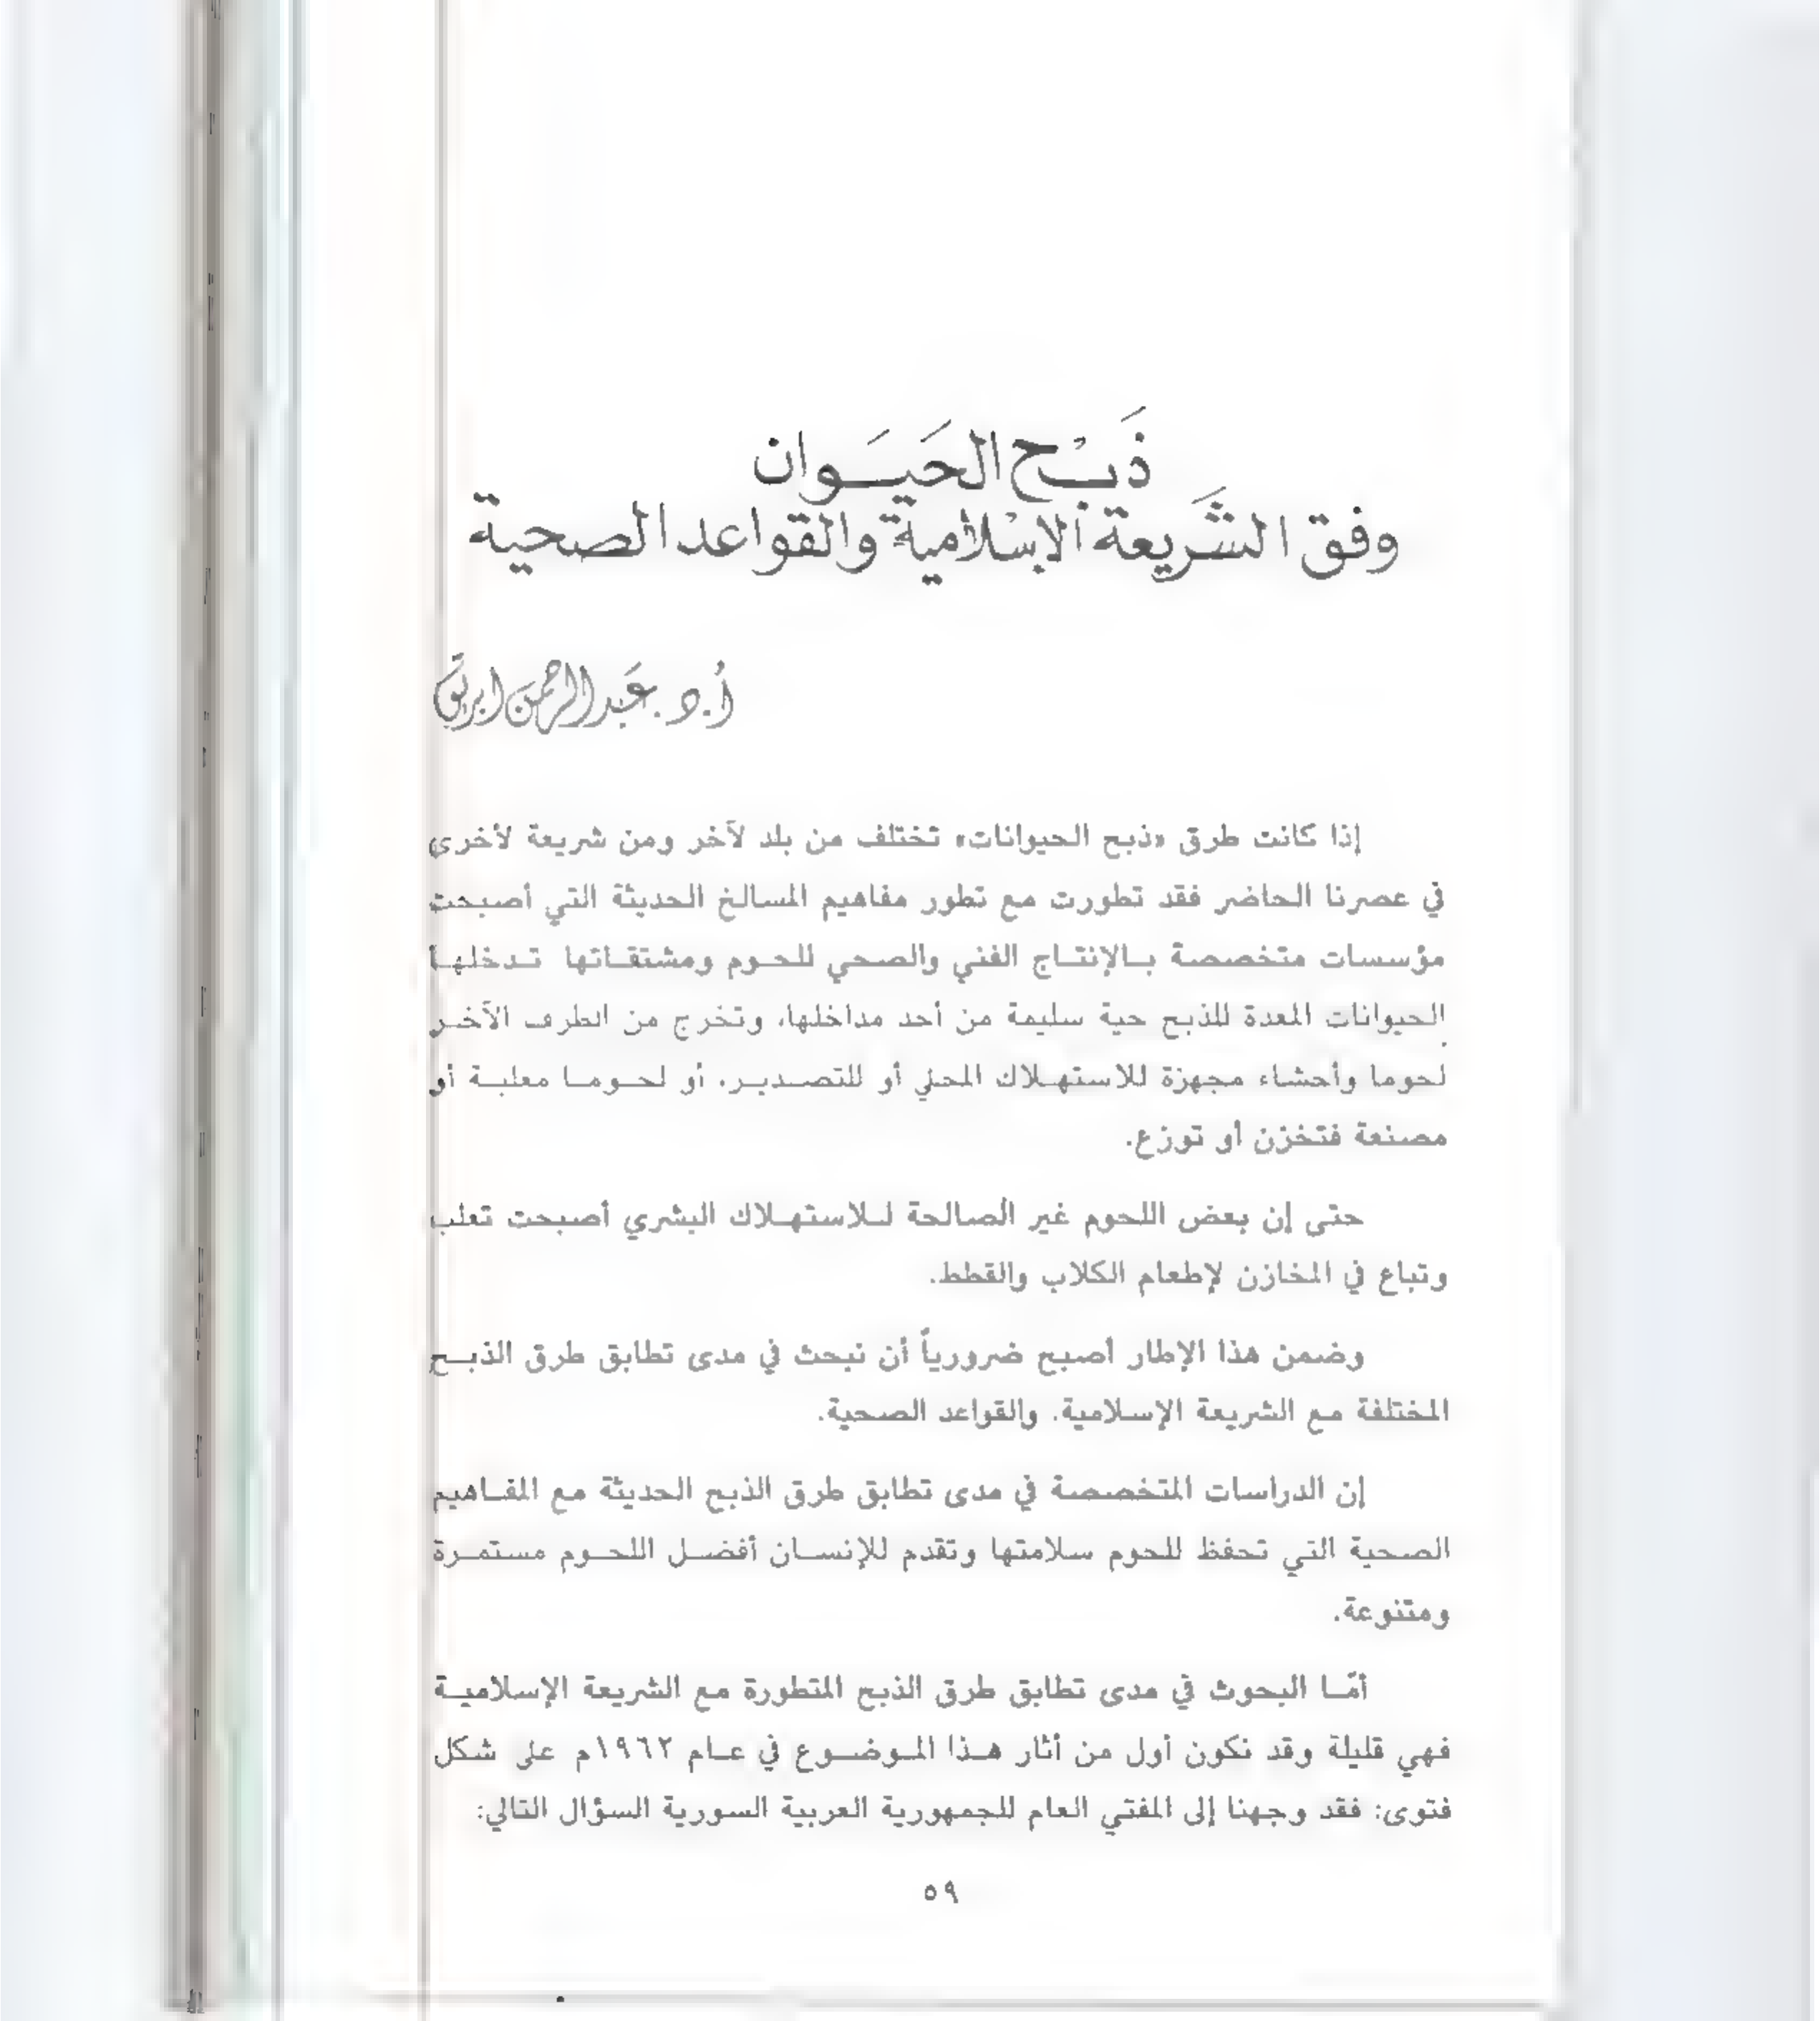 ذَبْح الحَيَوان
وفق الشَّريعة الإسْلامية والقواعد الصحية
أ.د. عَبد الرحمن ابريق
إذا كانت طرق «ذبح الحيوانات» تختلف من بلد لآخر ومن شريعة لأخرى
في عصرنا الحاضر فقد تطورت مع تطور مفاهيم المسالخ الحديثة التي أصبحت
مؤسسات متخصصة بالإنتاج الفني والصحي للحوم ومشتقاتها تدخلها
الحيوانات المعدة للذبح حية سليمة من أحد مداخلها، وتخرج من الطرف الآخر
لحوما وأحشاء مجهزة للاستهلاك المحلي أو للتصدير، أو لحوما معلبة أو
مصنعة فتخزن أو توزع.
حتى إن بعض اللحوم غير الصالحة للاستهلاك البشري أصبحت تعلب
وتباع في المخازن لإطعام الكلاب والقطط.
وضمن هذا الإطار أصبح ضرورياً أن نبحث في مدى تطابق طرق الذبح
المختلفة مع الشريعة الإسلامية، والقواعد الصحية.
إن الدراسات المتخصصة في مدى تطابق طرق الذبح الحديثة مع المفاهيم
الصحية التي تحفظ للحوم سلامتها وتقدم للإنسان أفضل اللحوم مستمرة
ومتنوعة.
أمّا البحوث في مدى تطابق طرق الذبح المتطورة مع الشريعة الإسلامية
فهي قليلة وقد نكون أول من أثار هذا الموضوع في عام ١٩٦٢م على شكل
فتوى: فقد وجهنا إلى المفتي العام للجمهورية العربية السورية السؤال التالي:
٥٩